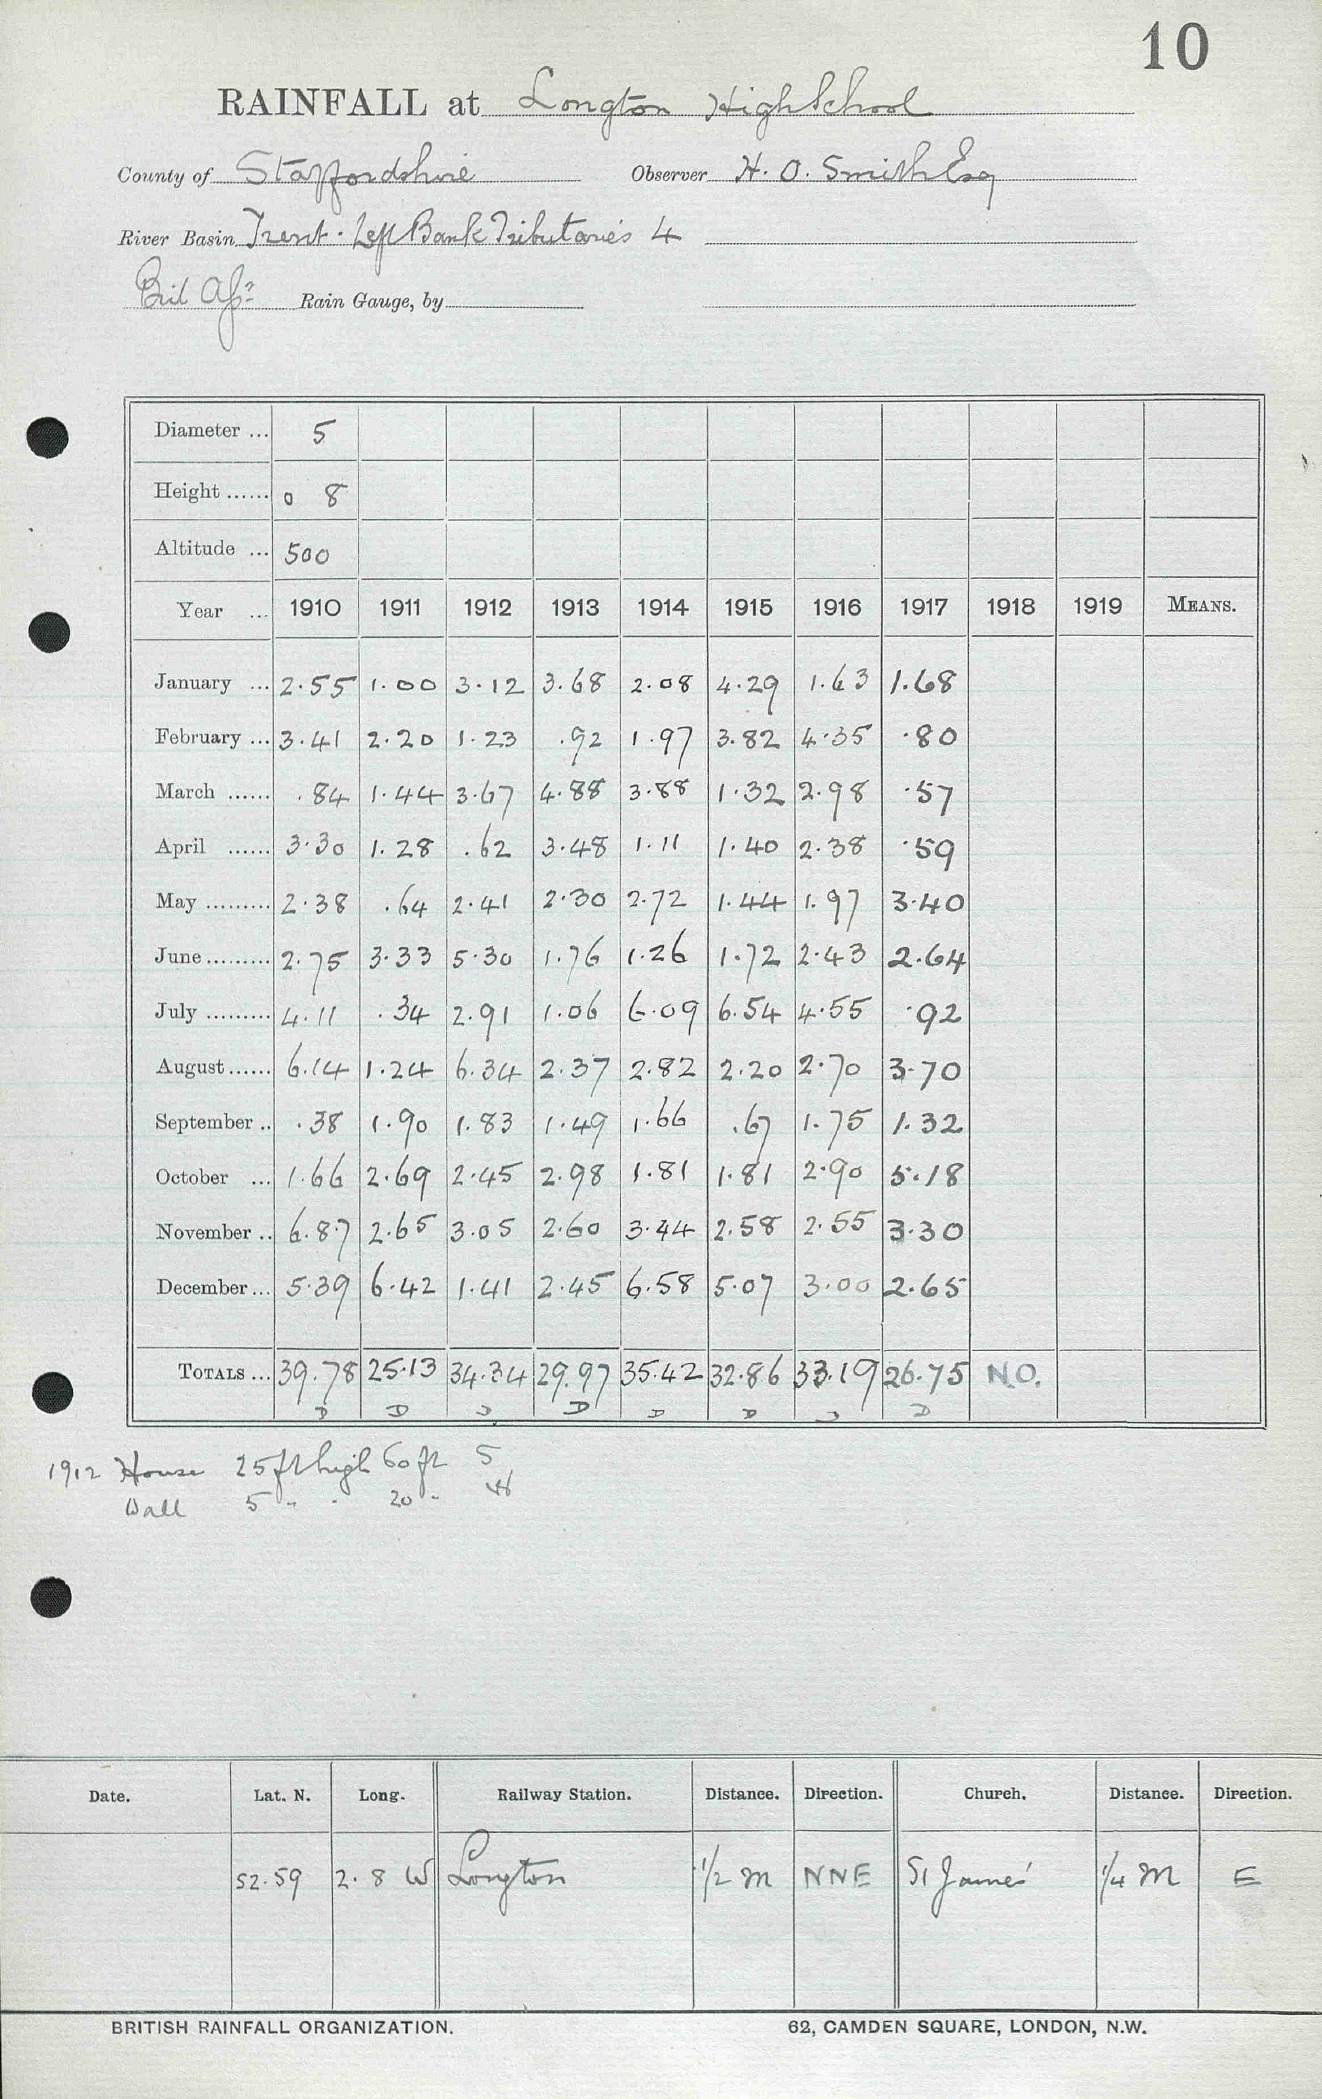 10
RAINFALL at Longton High School
County of Staffordshire Observer H. O. Smith Esq
River Basin Trent. Left Bank Tributaries 4
Rain Gauge, by
Diameter ... 5
Height ...... 0 8
Altitude ... 500
Year ... 1910 1911 1912 1913 1914 1915 1916 1917 1918 1919 MEANS.
January ... 2.55 1.00 3.12 3.68 2.08 4.29 1.63 1.68
February ... 3.41 2.20 1.23 .92 1.97 3.82 4.35 .80
March ...... .84 1.44 3.67 4.88 3.88 1.32 2.98 .57
April ...... 3.30 1.28 .62 3.48 1.11 1.40 2.38 .59
May ......... 2.38 .64 2.41 2.30 2.72 1.44 1.97 3.40
June ......... 2.75 3.33 5.30 1.76 1.26 1.72 2.43 2.64
July ......... 4.11 .34 2.91 1.06 6.09 6.54 4.55 .92
August ...... 6.14 1.24 6.34 2.37 2.82 2.20 2.70 3.70
September .. .38 1.90 1.83 1.49 1.66 .67 1.75 1.32
October ... 1.66 2.69 2.45 2.98 1.81 1.81 2.90 5.18
November .. 6.87 2.65 3.05 2.60 3.44 2.58 2.55 3.30
December ... 5.39 6.42 1.41 2.45 6.58 5.07 3.00 2.65
TOTALS ... 39.78 25.13 34.34 29.97 35.42 32.86 33.19 26.75 N.O.
D D D D D D D D
1912 House 25 ft high 60 ft S
Wall 5 " " 20 " W
Date. Lat. N. Long. Railway Station. Distance. Direction. Church. Distance. Direction.
52.59 2.8 W Longton 1/2 m NNE St James' 1/4 m E
BRITISH RAINFALL ORGANIZATION. 62, CAMDEN SQUARE, LONDON, N.W.